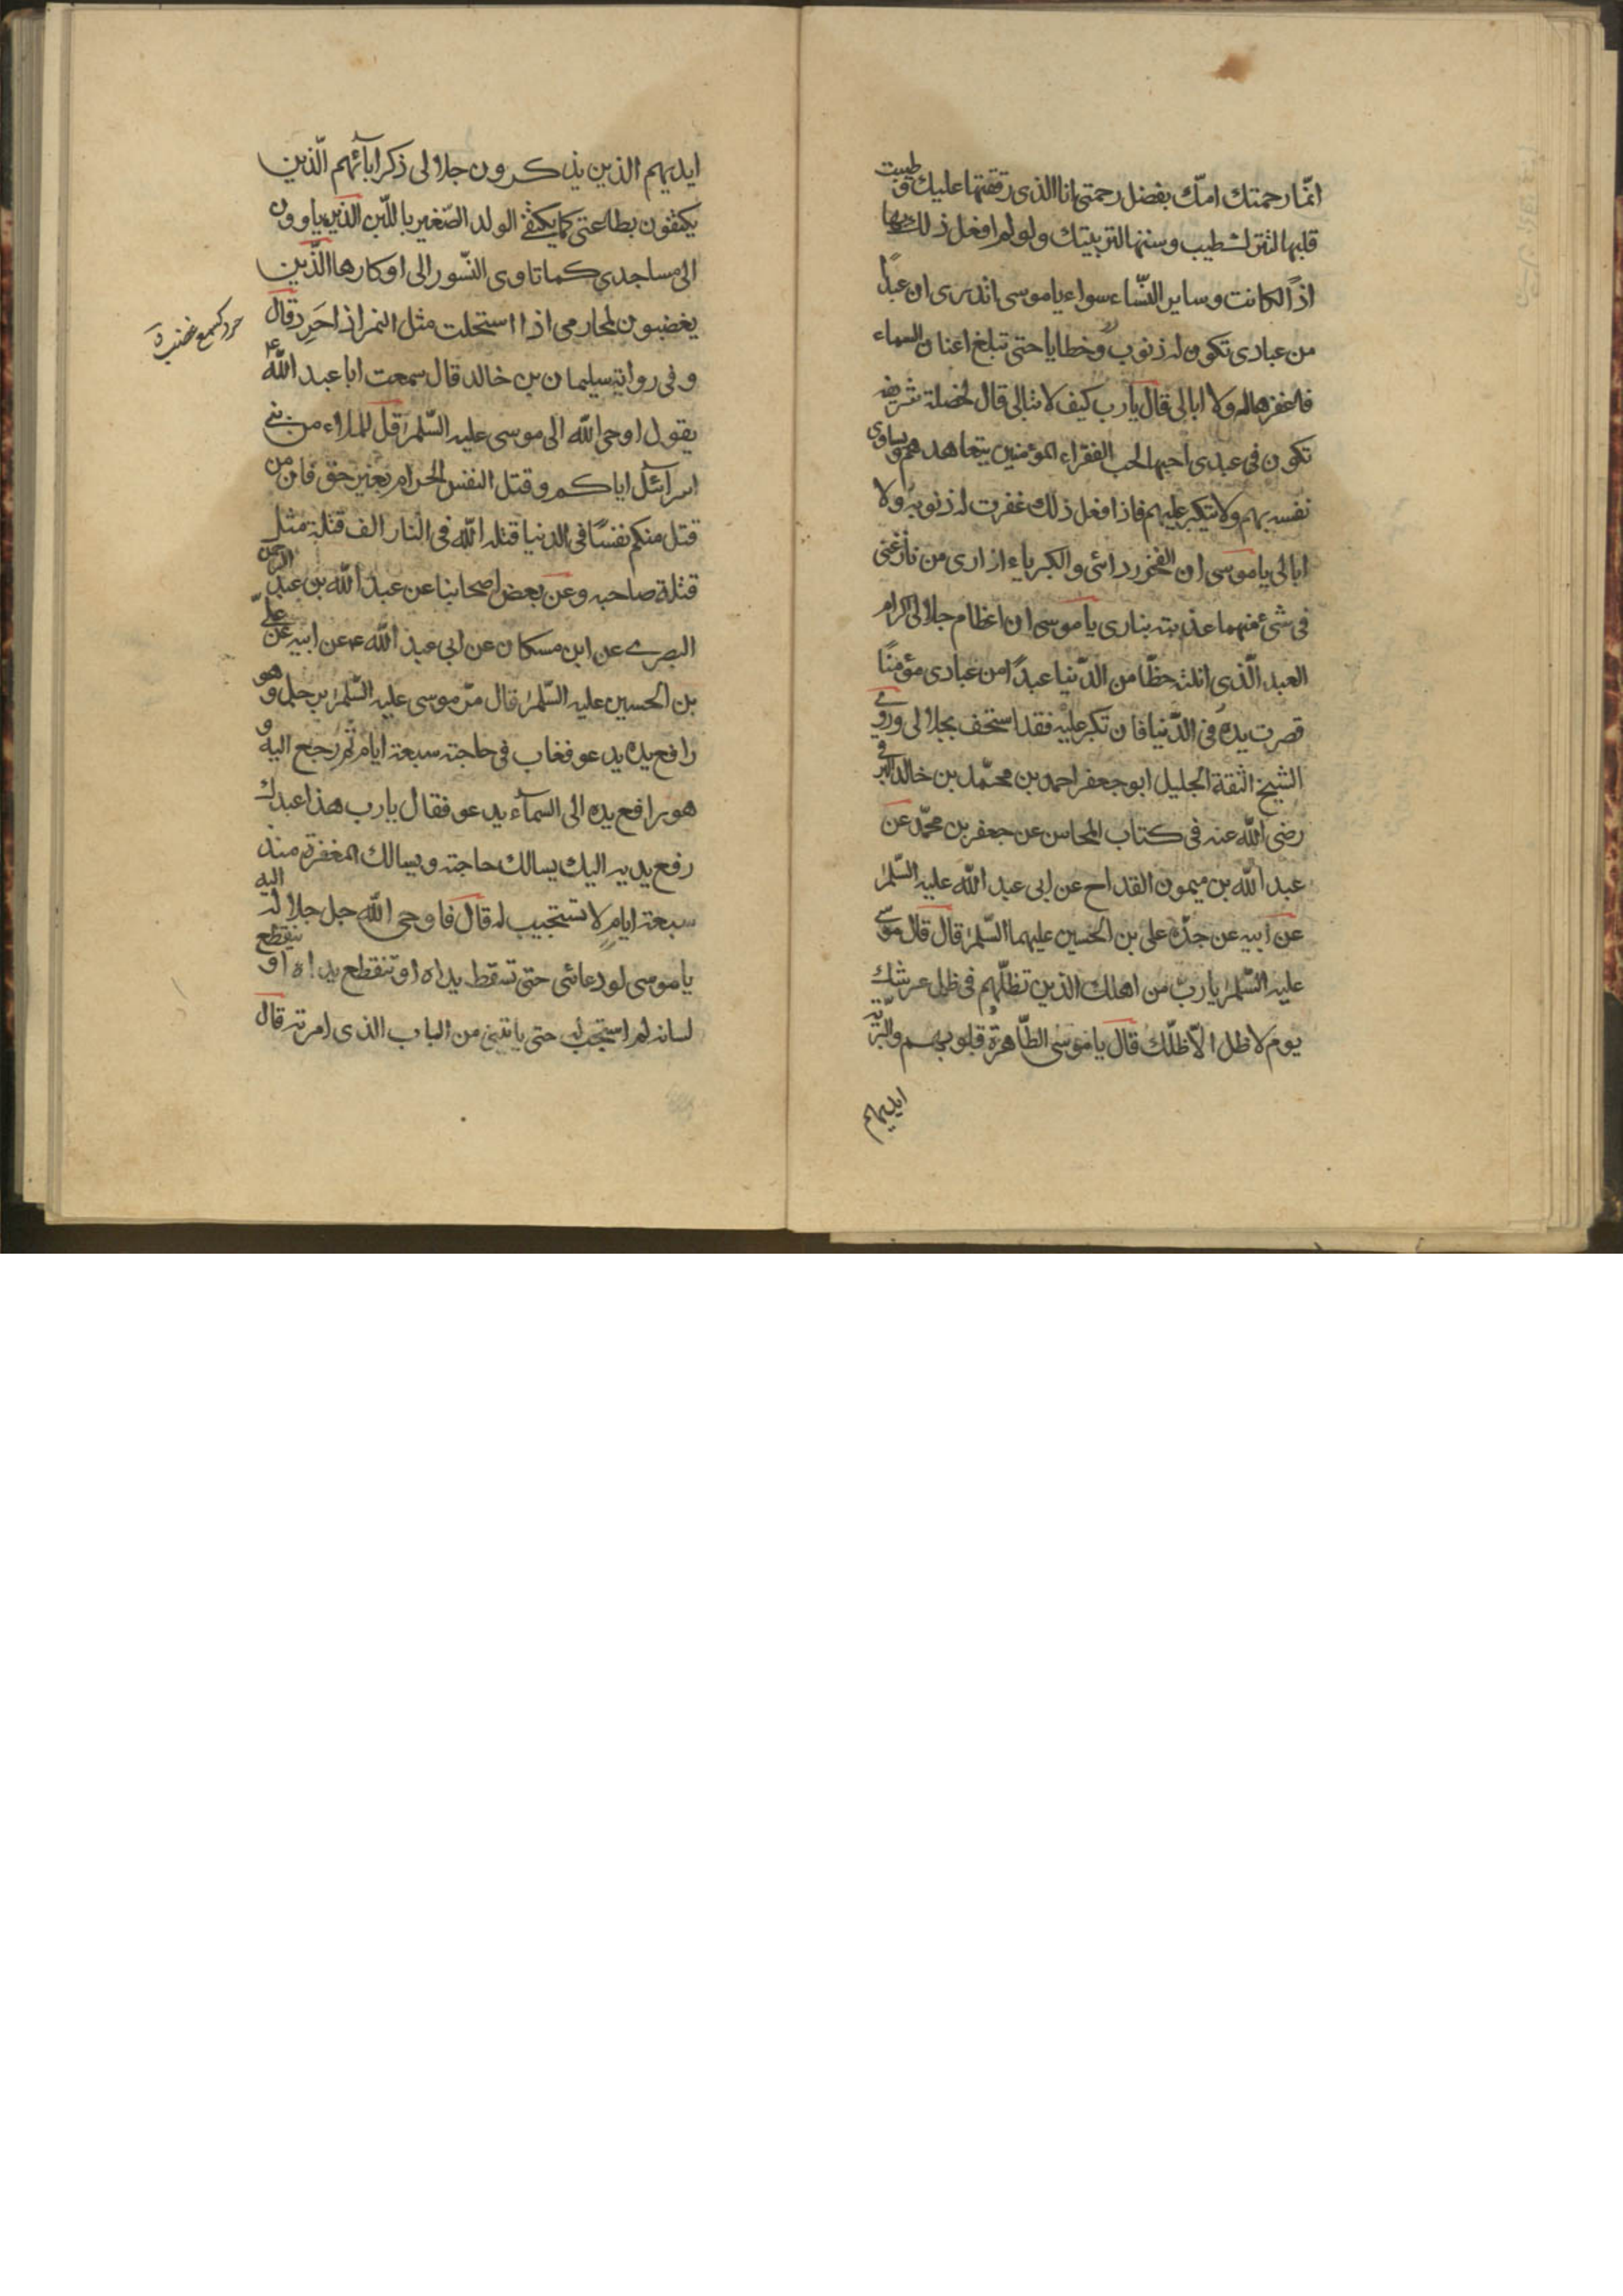 انّما رحمتك امّك بفضل رحمتى انا الذى رققتها عليك و طيبت
قلبها لتترك طيب وسنها لتربيتك ولو لم افعل ذلك بها
اذًا لكانت وساير النّساء سواء ياموسى اتدرى ان عبدًا
من عبادى تكون له ذنوب وخطايا حتى تبلغ اعنان السماء
فاغفرها له ولا ابالى قال يارب كيف لا تبالى قال لخصلة شريفه
تكون فى عبدى احبها لحب الفقراء المؤمنين يتعاهدهم ويساوى
نفسه بهم ولا يتكبر عليهم فاذا فعل ذلك غفرت له ذنوبه ولا
ابالى ياموسى ان الفخر ردائى والكبرياء ازارى من نازعنى
فى شئ منهما عذبته بنارى ياموسى ان اعظام جلالى اكرام
العبد الّذى انلته حظّا من الدّنيا عبدًا من عبادى مؤمنًا
قصرت يده فى الدّنيا فان تكبر عليه فقد استخف بجلالى وروى
الشيخ الثقة الجليل ابو جعفر احمد بن محمّد بن خالد البرقى
رضى اللّه عنه فى كتاب المحاسن عن جعفر بن محمّد عن
عبد اللّه بن ميمون القداح عن ابى عبد اللّه عليه السّلم
عن ابيه عن جدّه على بن الحسين عليهما السّلم قال قال موسى
عليه السّلم يارب من اهلك الذين تظلّهم فى ظل عرشك
يوم لا ظل الّا ظلّك قال ياموسى الطّاهرة قلوبهم والتّربة
ايديهم
ايديهم الذين يذكرون جلالى ذكر ابآئهم الّذين
يكتفون بطاعتى كما يكتفى الولد الصّغير باللّبن الذين ياوون
الى مساجدى كما تاوى النّسور الى اوكارها الّذين
يغضبون لمحارمى اذا استحلت مثل النمر اذا حَرِد قال
حرد كسمع غضب ق
وفى رواية سليمان بن خالد قال سمعت ابا عبد اللّه ع
يقول اوحى اللّه الى موسى عليه السّلم قل للملاء من بنى
اسرآئل اياكم وقتل النفس الحرام بغير حق فان من
قتل منكم نفسًا فى الدنيا قتله اللّه فى النار الف قتلة مثل
قتلة صاحبه وعن بعض اصحابنا عن عبد اللّه بن عبد الرحمن
البصرى عن ابن مسكان عن ابى عبد اللّه ع عن ابيه عن علىّ
بن الحسين عليه السّلم قال مرّ موسى عليه السّلم برجل وهو
رافع يده يدعو فغاب فى حاجته سبعة ايام ثم رجع اليه و
هو رافع يده الى السمآء يدعو فقال يارب هذا عبدك
رفع يديه اليك يسالك حاجته ويسالك المغفرة منذ
سبعة ايام لا تستجيب له قال فاوحى اللّه جل جلاله اليه
ياموسى لو دعانى حتى تسقط يداه او تنقطع يداه او ينقطع
لسانه لم استجب له حتى ياتينى من الباب الذى امرته قال